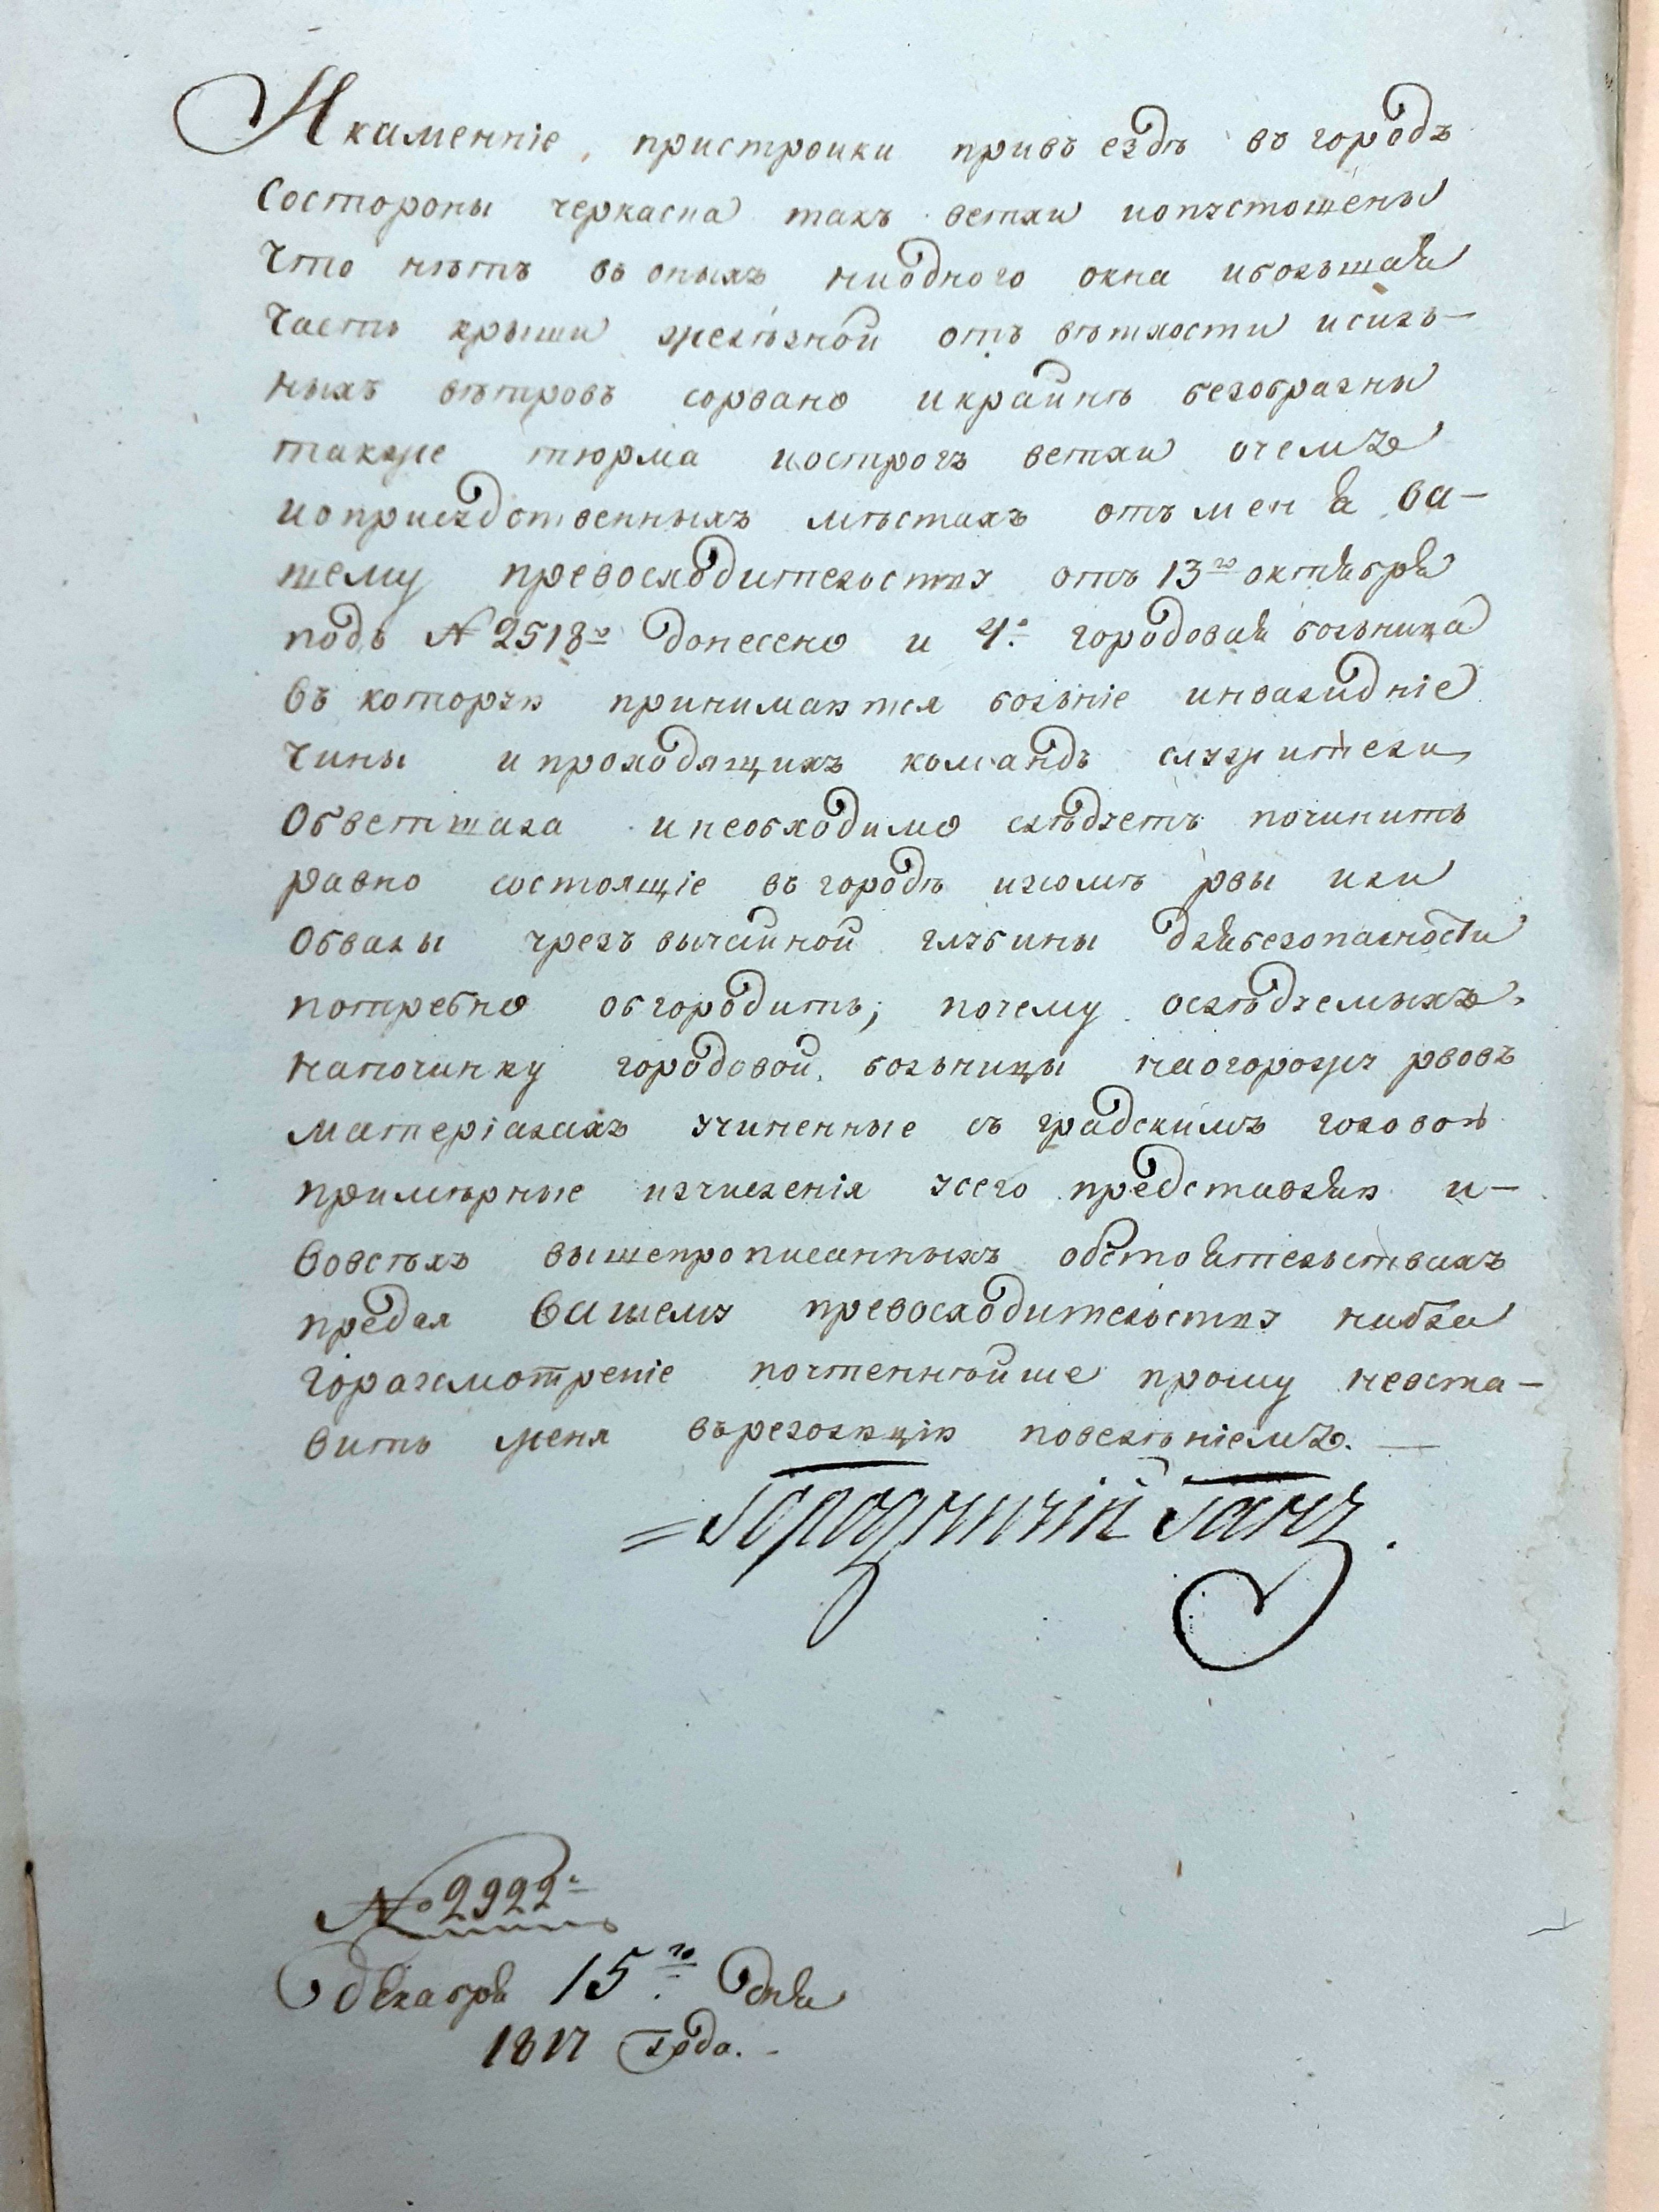 И каменніе, пристроики привъ ездѣ въ городъ
Состороны черкаска такъ ветхи иопустошены
Что нѣтъ въ оныхъ ниодного окна ибольшая
Часть крыши железной отъ вѣтхости исиль-
ныхъ вѣтровъ сорвано икрайнѣ безобразны
также тюрма иострогъ ветхи очемъ
иоприсудственныхъ мѣстахъ отъ меня Ва-
шему превосходительству отъ 13го октября
подъ № 2518го донесено и 4е городовая больница
Въ которую принимаются больніе инвалидніе
Чины ипроходящихъ командъ служители
Обветшала инеобходимо слѣдуетъ починить
равно состоящіе въ городѣ изюмѣ рвы или
Обвалы чрезъ вычайной глубины длябезопасности
потребно обгородить; почему ослѣдуемыхъ
напочинку городовой больницы наогорожу рвовъ
матеріалахъ учиненные съ градскимъ головою
примѣрные изчисленія усего представляю и-
вовсѣхъ вышепрописанныхъ обстоятельствахъ
предая Вашему превосходительству наблa
горазсмотреніе почтеннѣйше прошу неоста-
вить меня върезолюцію повелѣніемъ. —
= Городничій Ганъ.
№ 2922е
декабря 15го дня
1817 года. -